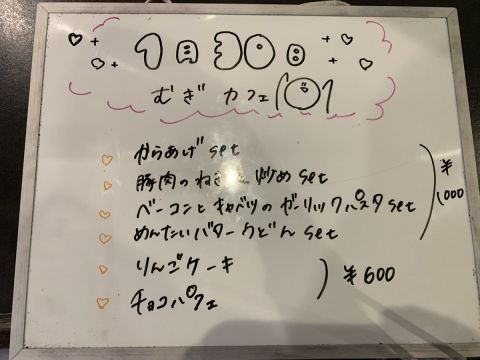 1月30日
むぎカフェ
からあげset
豚肉のねぎ 炒めset
ベーコンとキャベツのガーリックパスタset
めんたいバターうどんset
¥1000
りんごケーキ
チョコパフェ
¥600